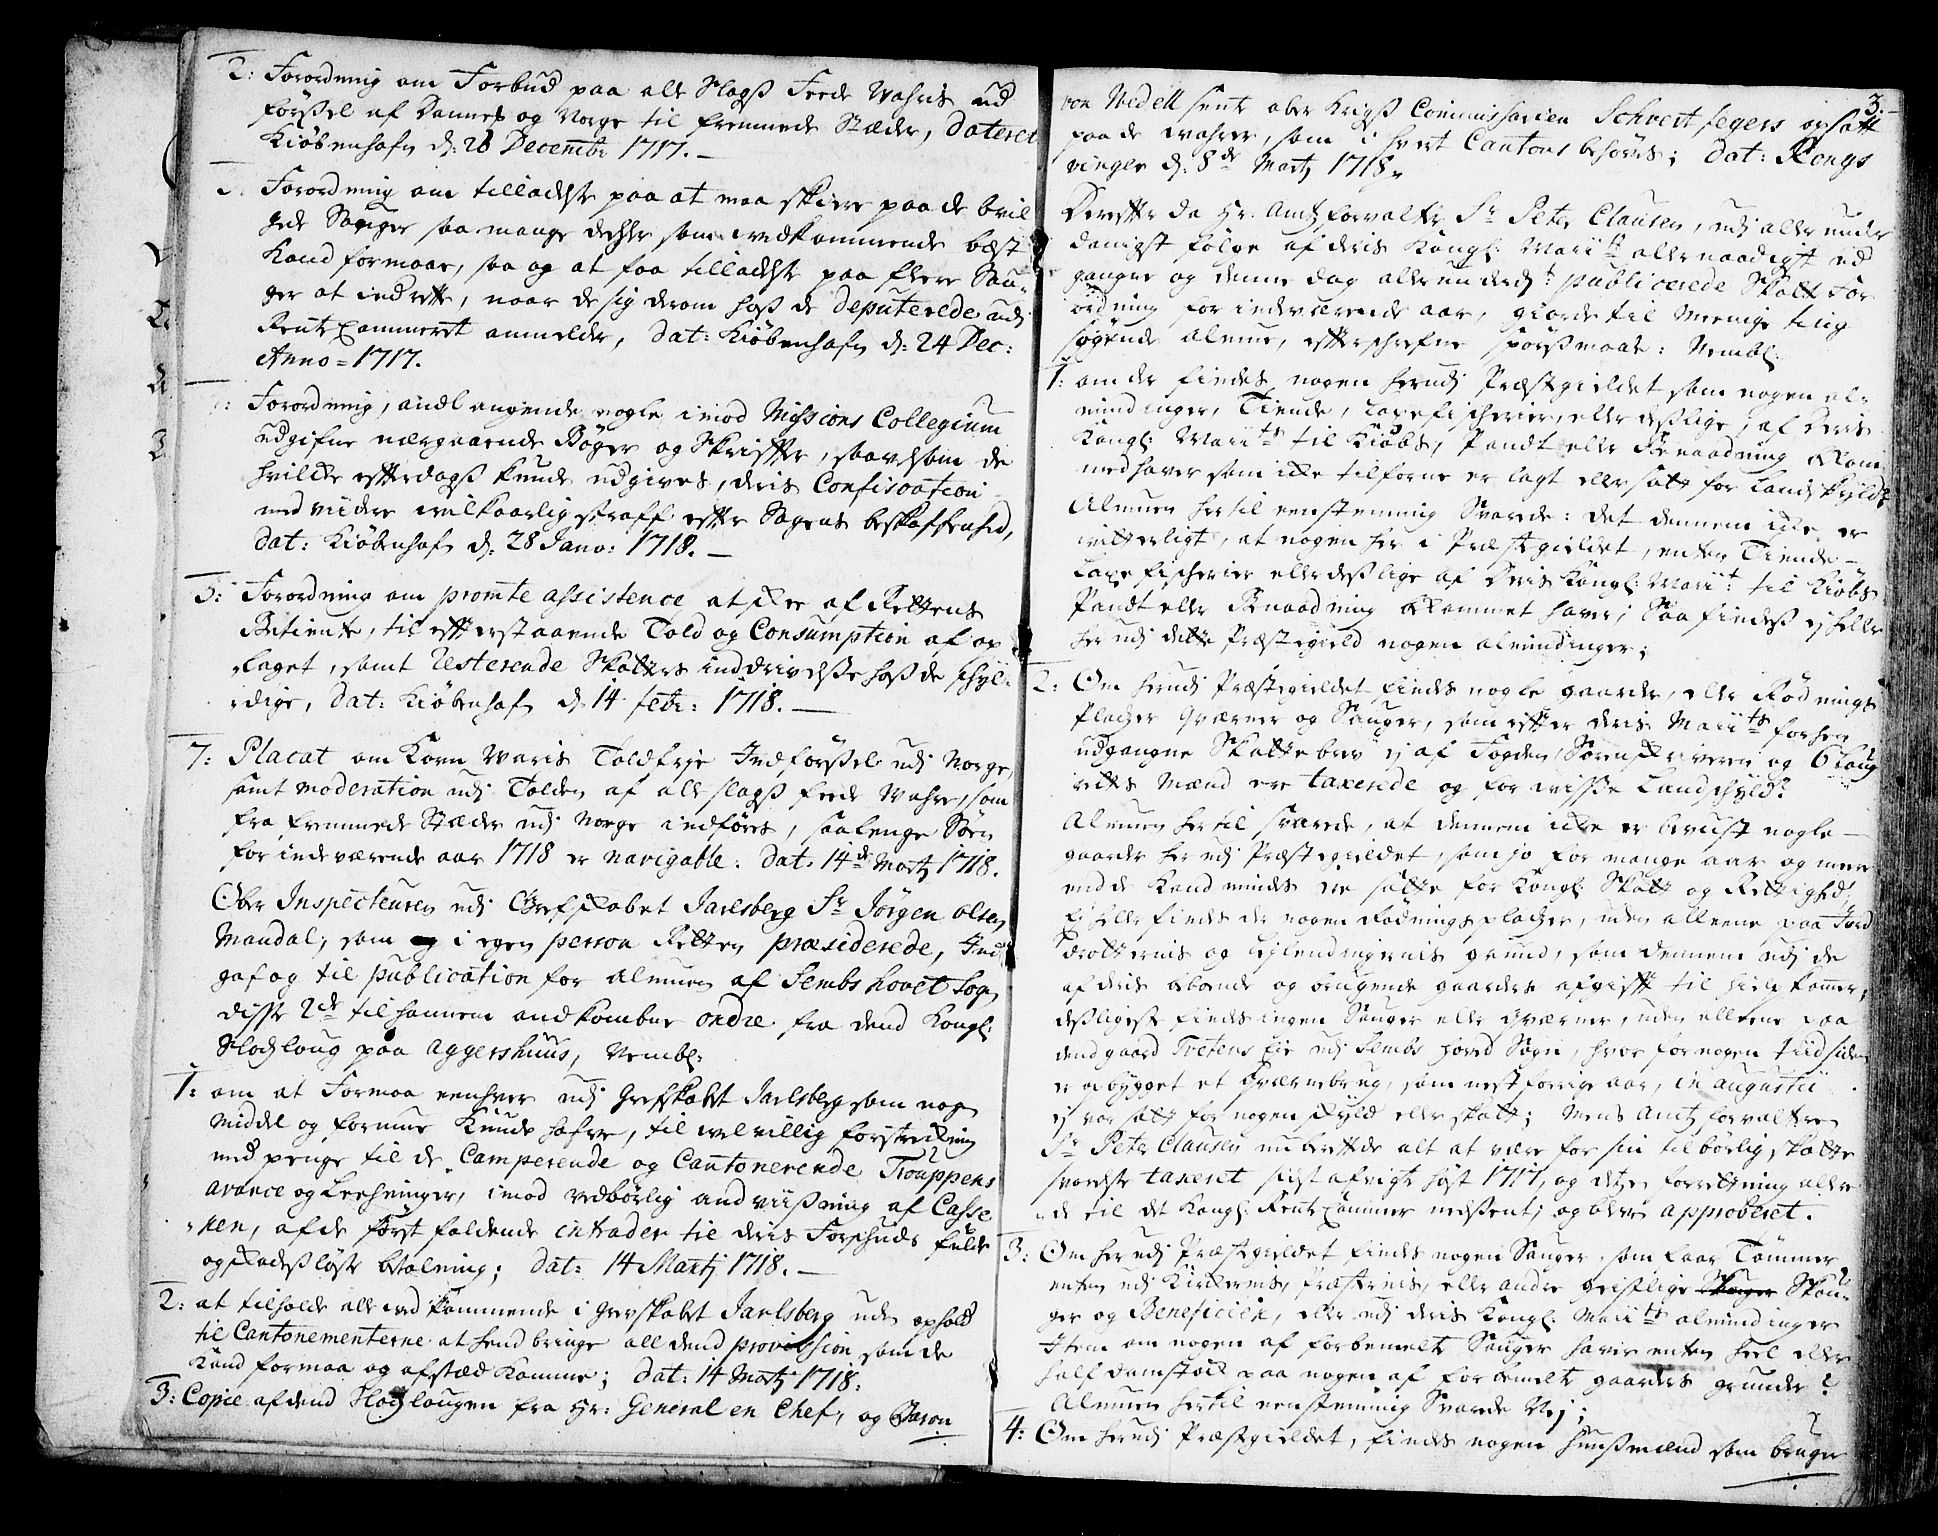 2: Forordning om Forbud paa alle Slags Feede Wahris ud
förßel af Dannes og Norge til fremmede Stæder, dateret
Kiöbenhafn d: 28 Decembr 1717. —
3. Forordning om tilladelse paa at maa skiære paa de bevil
gede Sauger saa mange dehler som vedkommende best
Kand formaae, saa og at faa tilladelse paa flere Sau-
ger at indrette, naar de sig derom hoß de deputerede udj
RenteCammeret anmelder, dat: Kiöbenhafn d: 24 Dec:
Anno = 1717.
: Forordning, andlangende nogle imod Missions Collegium
udgifne nærgaaende Böger og Skriffter, saavelsom de
hvilke efterdags kunde udgives, deris Confiscation
med viidere wilkaarlig straff efter Sagens beskaffenhed,
dat: Kiöbenhafn d: 28 Janv: 1718. —
5: Forordning om promte assistence at skee af Rettens
Betiente, til effterstaaende Told og Consumption af op
laget, samt resterende Skatters inddrivelse hoß de skyl-
dige, dat: Kiöbenhafn d. 14 febr: 1718. —
7: Placat om Korn Waris Toldfrje Indförßel udj Norge,
samt moderation udj Tolden af alle slags feede Wahre, som
fra fremmede Stæder udj Norge indföres, saalenge Söen
for indeværende aar 1718 er navigable. dat. 14de Martj 1718.
Ober Inspecteuren udj Grefskabet Jarlsberg Sr Jörgen olsen
Mandal, som i egen person Retten præsiderede, Ind
gaf og til publication for almuen af Sembs hovet Sogn
disse 2de til hannem andkombne ordre fra dend Kongl:
Slodzloug paa Aggershuus, Nembl:
1: om at Formaa eenhver udj Grefskabet Jarlsberg som nogen
middel og formue Kunde hafve, til velvillig forstrekning
med penge til de Camperende og Cantonerende Trouppens
avance og Leehninger, imod vedbörlig andviißning af Casse
ren, af de först faldende intrader til deris Forschuds fulde
og skadeßlöse betalning; dat: 14 Martj 1718. —
2: at tilholde alle ved kommende i Grefskabet Jarlsberg uden ophold
til Cantonementerne at henbringe all dend provission som de
kand formaa og afsted komme; dat: 14 Martj 1718.
3: Copie af dend Slodzlougen fra Hr: General en Chef, og Baron
3.
von Wedell sente ober Krigs Commissarien Schvertfegers ersatt
paa de wahrer, som i hvert Cantons behöves; dat: Kongs
vinger d. 8de Martj 1718.
Derefter da Hr. Amtzforvalter Sr Peter Clausen, udj aller under
danigst fölge af deris Kongl: Maiits aller naadigst ud
gangne og denne dag allerunderdt: publicerede Skatt For
ordning for indeværende aar, giorde til Meenige ting
sögende almue, effterschrefne spörßmaale: Nembl:
1: om der findes nogen herudj Præstegieldet som nogen al-
mindinger, Tiende, Laxefischerier, eller deßlige, af deris
Kongl: Maiits til Kiöbs, Pandt eller Benaadning bekom
med haver som icke tilforne er lagt eller satt for Landskyld?
Almuen hertil eenstemmig Svarede: det dennem icke er
vitterligt, at nogen her i Præstegieldet, enten Tiende —
Laxefischerier eller deßlige af deris Kongl: Maiit: til Kiöbs
Pandt eller Benaadning bekommet haver; Saa findeß ej heller
her udj dette Præstegield nogen almindinger;
2: Om herudj Præstegieldet findes nogle gaarde, eller Rödnings
Pladzer Qværner og Sauger, som efter deris Maiits forhen
udgangne Skattebrev ej af Fogden, Sörenskriveren og 6 Laug
rettes Mænd ere taxerede og for wisse Landschyld?
Almuen hertil svarede, at dennem icke er bevist nogle —
gaarde her udj Præstegieldet, som jo for mange aar og meere
end de kand mindes ere satte for Kongl: Skatt og Rettighed,
Ej heller findes der nogen Rödnings pladzer, uden alleene paa Jord
drotternis og Leylendingernis grund, som dennem udj de
af deris aboende og brugende gaarders afgifft til hielp kommer;
desligeste findes ingen Sauger eller Qværner, uden alleene paa
dend gaard Tretens Eie udj Sembs Hovet Sogn, hvor for nogen tiid siden
er opbygget et Qværnebrug, som nest forrige aar, in augustij
ej var satt for nogen skyld eller skatt; Mens Amtzforvalteren
Sr Peter Clausen underrettede alt at være for sin tilbörlig skatte
svarelse taxeret sidst afvigte höst 1717, og detz forretning aller
ede til det Kongl: Rente Cammer nedsent, og bleven approberet.
3: Om her udj Præstegieldet findes nogen Sauger som faar Tömmer
enten udj Kirckernis, Præsternis, eller andre geistlige Skou-
ger og Beneficier, eller udj deris Kongl: Maiits almindinger
Item om nogen af forbemelte Sauger haver enten heel eller
half damstock paa nogen af forbemelte gaarders grunde?
Almuen hertil eenstemmig Svarede Nej;
4: Om herudj Præstegieldet, findes nogen Huusmænd som bruger